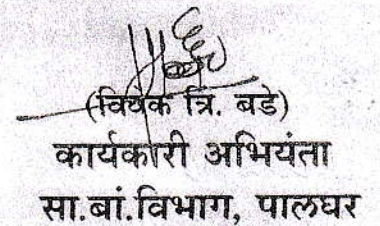 (विवेक त्रि. बडे)
कार्यकारी अभियंता
सा.बां.विभाग, पालघर